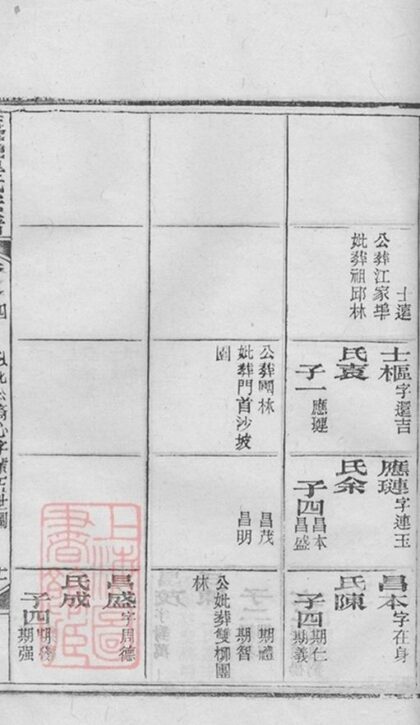 士遠
公葬江家埠
妣葬祖邱林
士樞字選吉
氏袁
子一應璉
公葬園林
妣葬門首沙坡
園
應璉字連玉
氏余
子四昌本
昌盛
昌茂
昌明
昌本字在身
氏陳
子四期仁
期義
期禮
期智
公妣葬雙柳園
林
昌盛字周德
氏成
子四
期强
上海圖書館藏